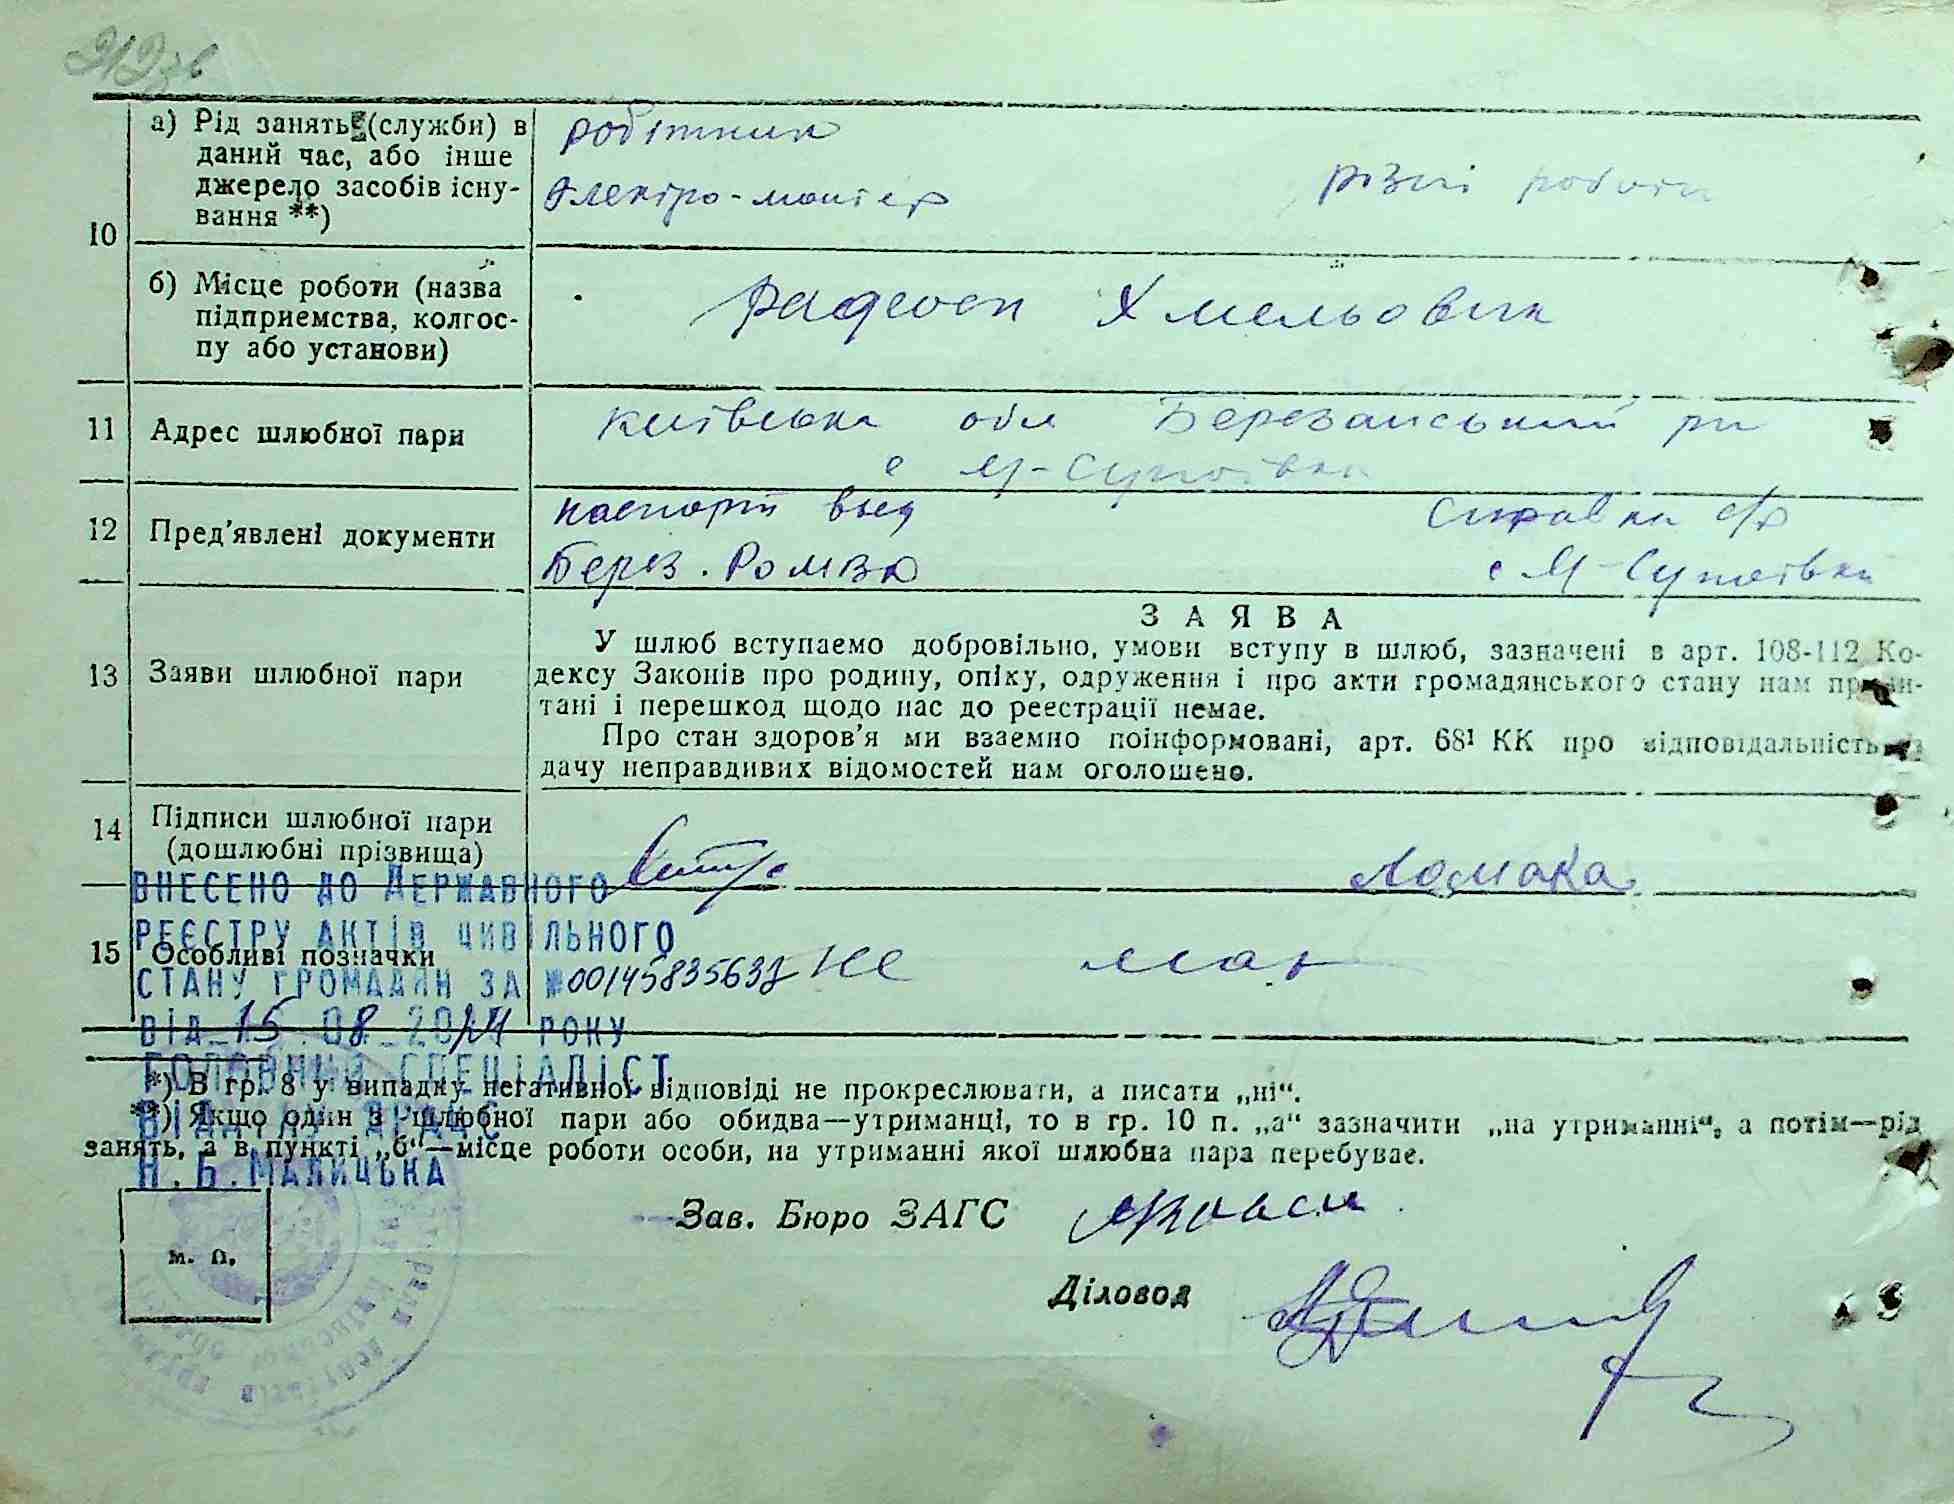 а) Рід занять (служби) в
даний час, або інше
джерело засобів існу-
вання **)
робітник
електро-монтер
різні роботи
10
б) Місце роботи (назва
підприємства, колгос-
пу або установи)
радгосп Хмельовик
11
Адрес шлюбної пари
київська обл Березанський рн
с М-Супоївка
12
Пред'явлені документи
паспорт выд
Берез. Ромвд
Справка с/р
с М-Супоївка
13
Заяви шлюбної пари
ЗАЯВА
У шлюб вступаємо добровільно, умови вступу в шлюб, зазначені в арт. 108-112 Ко-
дексу Законів про родину, опіку, одруження і про акти громадянського стану нам прочи-
тані і перешкод щодо нас до реєстрації немає.
Про стан здоров'я ми взаємно поінформовані, арт. 68¹ КК про відповідальність за
дачу неправдивих відомостей нам оголошено.
14
Підписи шлюбної пари
(дошлюбні прізвища)
Ломака
ВНЕСЕНО ДО ДЕРЖАВНОГО
РЕЄСТРУ АКТІВ ЦИВІЛЬНОГО
15
Особливі позначки
не має
СТАНУ ГРОМАДЯН ЗА №00145835637
ВІД 15.08.2024 РОКУ
ГОЛОВНИЙ СПЕЦІАЛІСТ
*) В гр. 8 у випадку негативної відповіді не прокреслювати, а писати „ні“.
ВІДДІЛУ ДРАЦС
**) Якщо один з шлюбної пари або обидва—утриманці, то в гр. 10 п. „а“ зазначити „на утриманні“, а потім—рід
занять, а в пункті „б“—місце роботи особи, на утриманні якої шлюбна пара перебуває.
Н.Б.МАЛИЦЬКА
Зав. Бюро ЗАГС
м. п.
Діловод